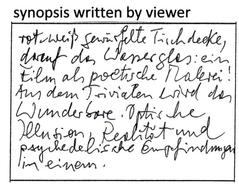 synopsis written by viewer
rot weiß gewürfelte Tischdecke,
darauf das Wasserglas: ein
Film als poetische Malerei!
Aus dem Trivialen wird das
Wunderbare. Optische
Illusion, Realität und
psychedelische Empfindungen
in einem.